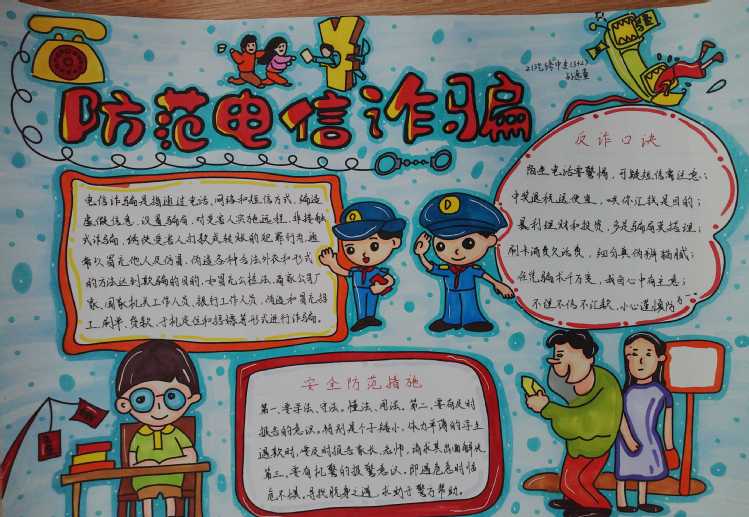 防范电信诈骗
电信诈骗是指通过电话、网络和短信方式,编造
虚假信息,设置骗局,对受害人实施远程、非接触
式诈骗,诱使受害人打款或转账的犯罪行为,通
常以冒充他人及仿冒、伪造各种合法外衣和形式
的方法达到欺骗的目的,如冒充公检法、商家公司厂
家、国家机关工作人员、银行工作人员,伪造和冒充招
工、刷单、贷款、手机定位和招嫖等形式进行诈骗。
反诈口诀
陌生电话要警惕,可疑短信需注意;
中奖退税送便宜,哄你汇钱是目的;
暴利理财和投资,多是骗局莫搭理;
刷卡消费欠话费,细分真伪辨猫腻;
任凭骗术千万变,我自心中有主意;
不理不信不汇款,小心谨慎防
安全防范措施
第一,要学法、守法、懂法、用法。第二,要有及时
报告的意识。特别是个子矮小、体力单薄的学生
遇敌时,要及时报告家长、老师,请求其出面解决
第三,要有机警的报警意识,即遇危急时临
危不惧,寻找脱身之道,求助于警方帮助。